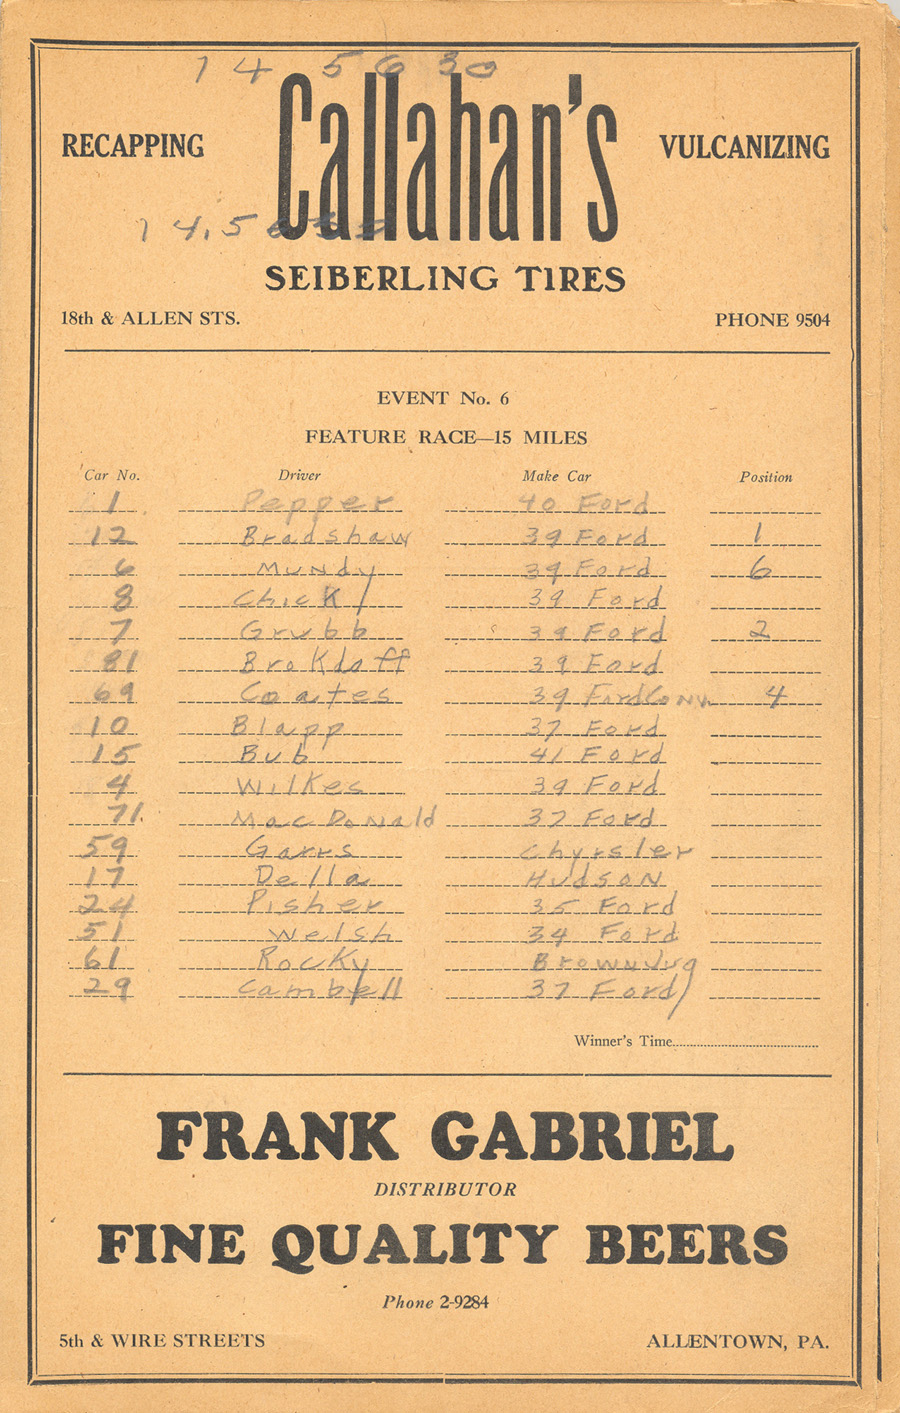 14 5630
Callahan's
RECAPPING VULCANIZING
14.5630
SEIBERLING TIRES
18th & ALLEN STS. PHONE 9504
EVENT No. 6
FEATURE RACE—15 MILES
Car No. Driver Make Car Position
1 Pepper 40 Ford
12 Bradshaw 39 Ford 1
6 Mundy 39 Ford 6
8 Chick 39 Ford
7 Grubb 39 Ford 2
81 Brokdoff 39 Ford
69 Coates 39 Ford Conv. 4
10 Blapp 37 Ford
15 Bub 41 Ford
4 Wilkes 39 Ford
71 MacDonald 37 Ford
59 Garrs Chyrsler
17 Della Hudson
24 Pisher 35 Ford
51 Welsh 34 Ford
61 Rocky Brown Jug
29 Cambell 37 Ford
Winner's Time
FRANK GABRIEL
DISTRIBUTOR
FINE QUALITY BEERS
Phone 2-9284
5th & WIRE STREETS ALLENTOWN, PA.